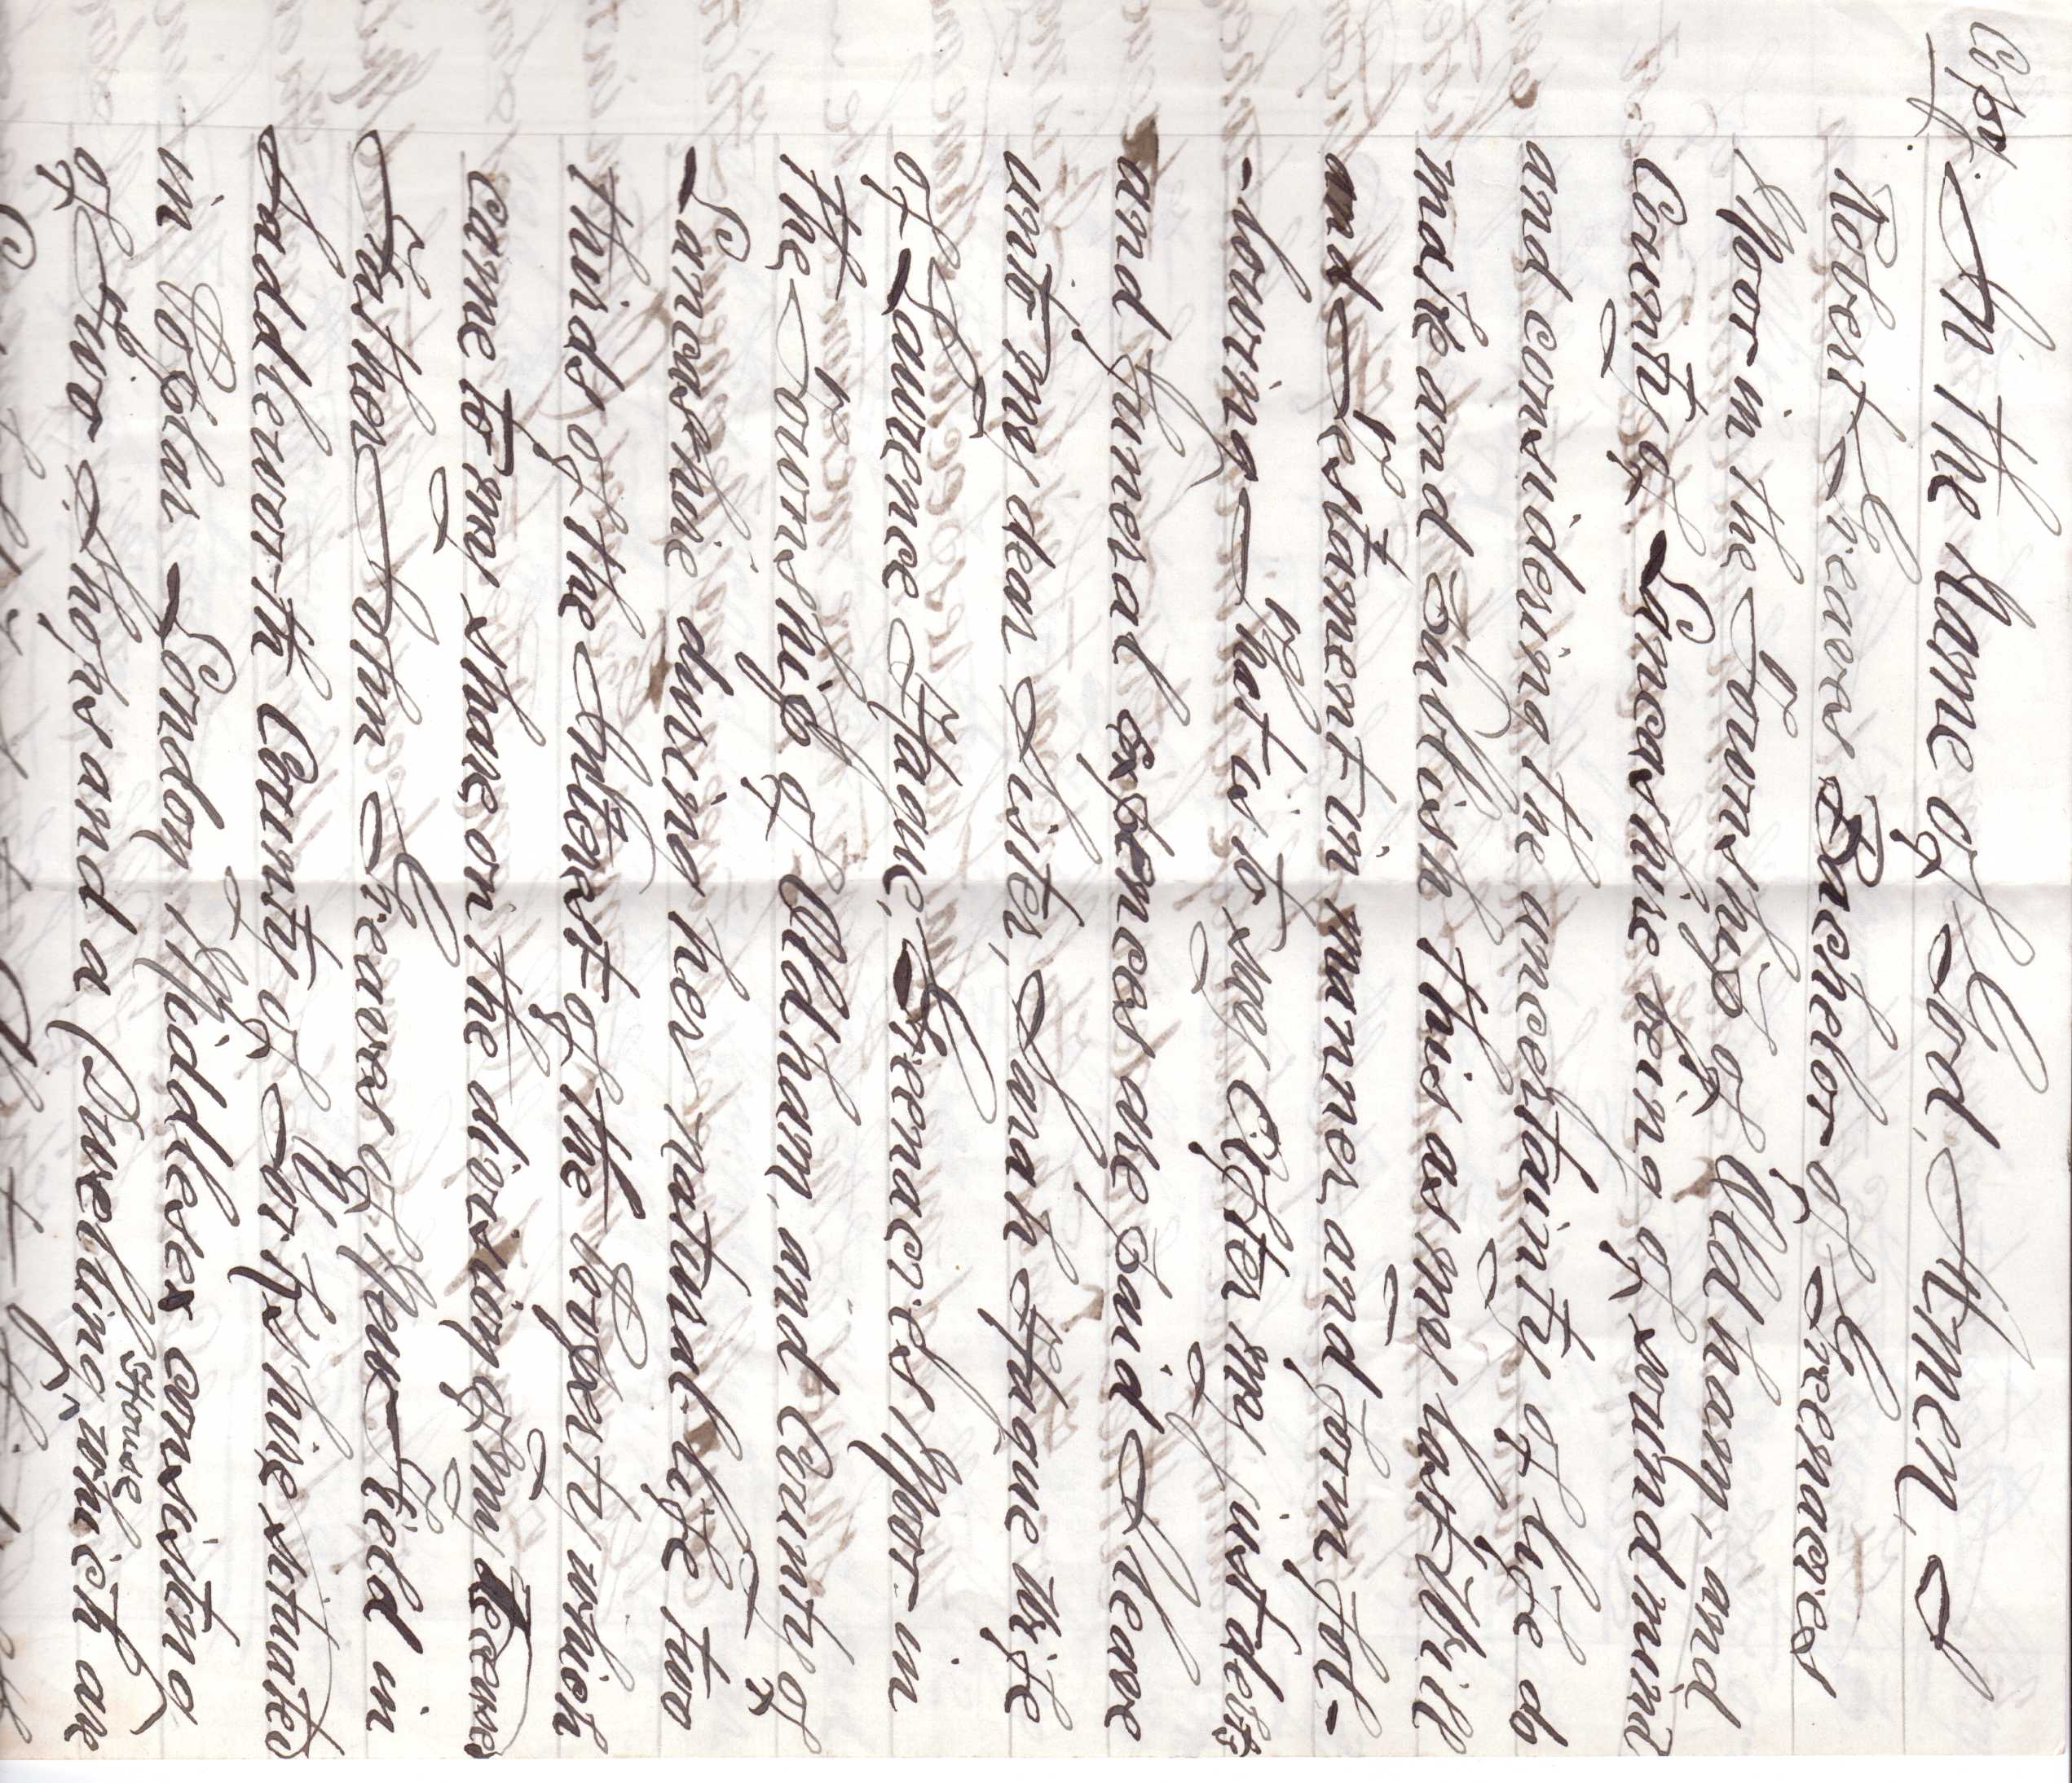 Copy.
In the Name of God, Amen, I
Robert Greaves Bachelor of Greenacres
Moor in the Township of Oldham, and
County of Lancashire being of sound mind
and considering the uncertainty of life do
make and Publish this as my last Will
and Testament in manner and form fol-
-lowing That is to say After my just debts
and funeral Expences are paid I leave
unto my dear Sister, Sarah Hague Wife
of Lawrence Hague, Greenacres Moor in
the Township of Oldham, and County of
Lancashire during her natural life two
thirds of the Interest of the Property which
came to my share on the division of my deceased
Father John Greaves of New Field in
Saddleworth County of Yorkshire situated
in Poplar London Middlesex consisting
of two Shops and a Dwelling House, which are